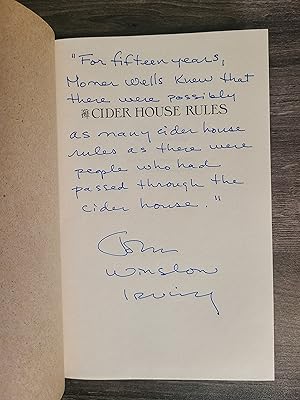 "For fifteen years,
Homer Wells knew that
there were possibly
THE CIDER HOUSE RULES
as many cider house
rules as there were
people who had
passed through the
cider house."
John
Winslow
Irving